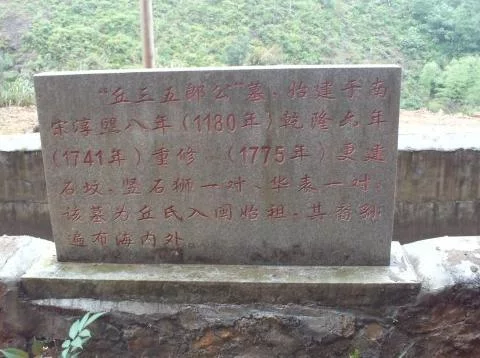 “丘三五郎公”墓，始建于南
宋淳熙八年（1180年）乾隆六年
（1741年）重修，（1775年）更建
石坟，竖石狮一对、华表一对。
该墓为丘氏入闽始祖，其裔孙
遍布海内外。